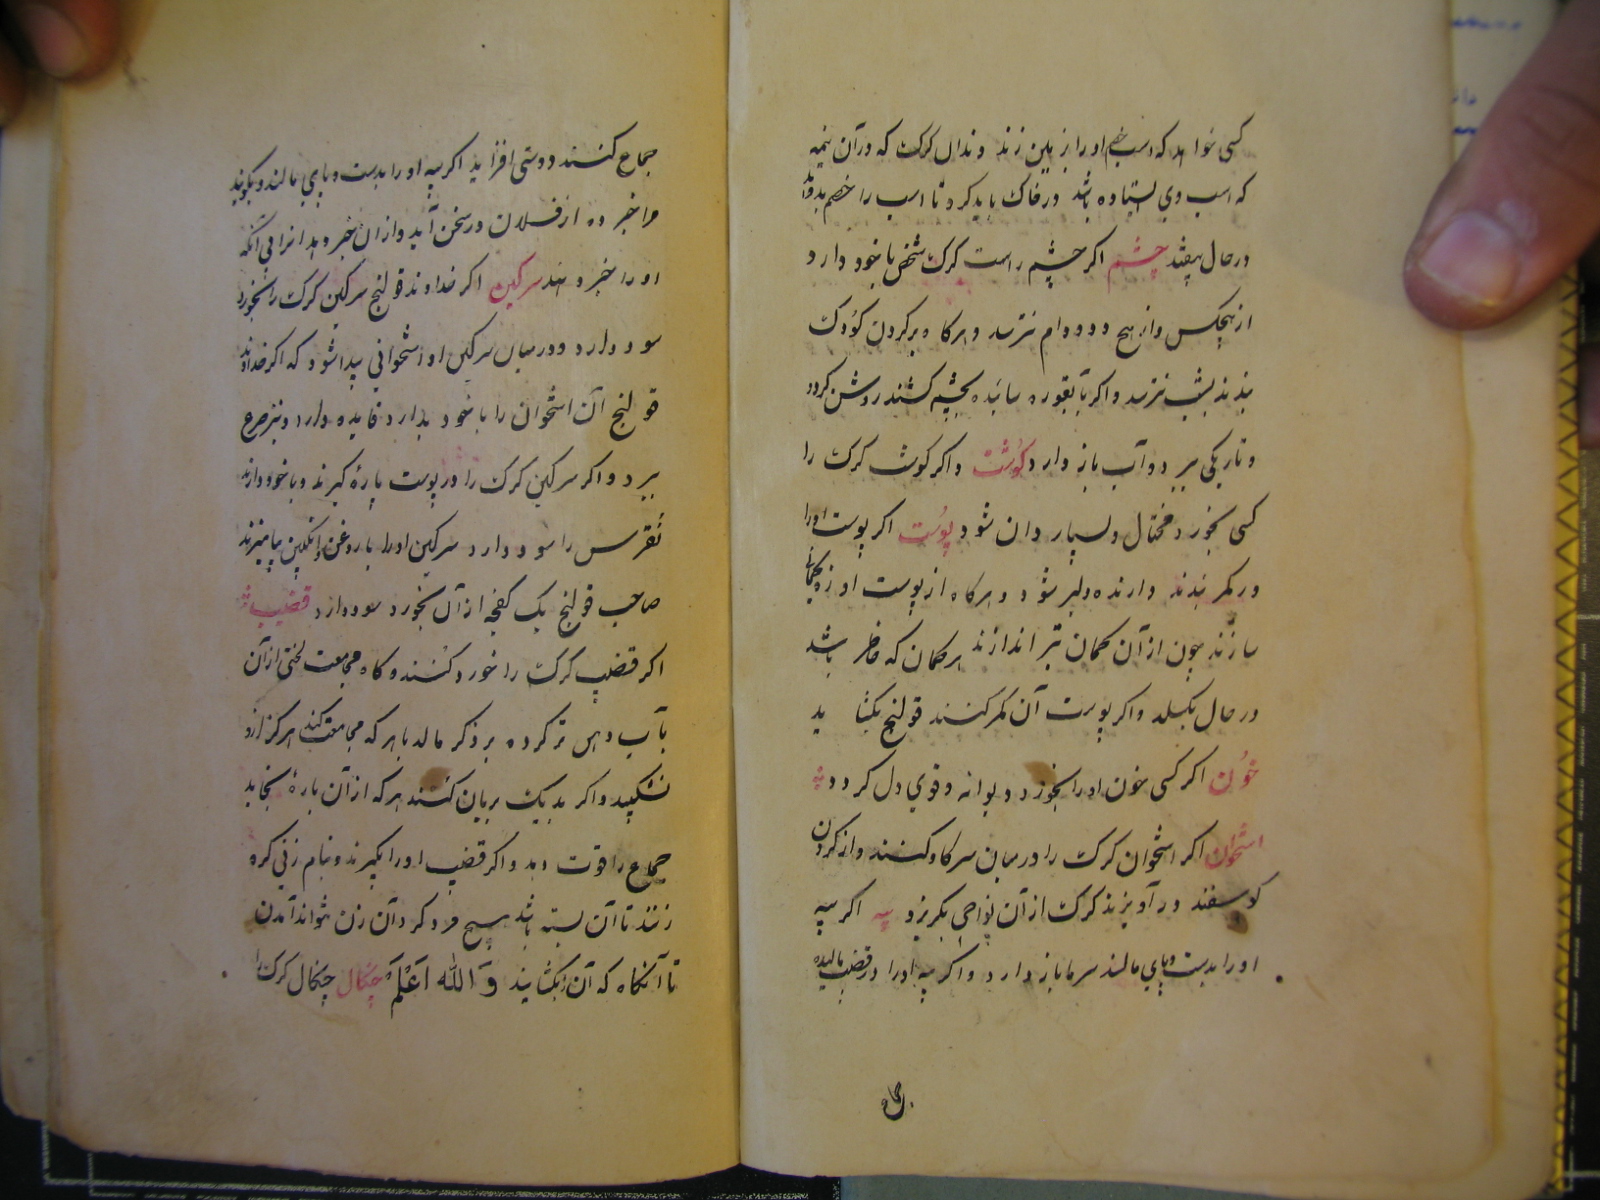 کسی خواهد که اسب خصم او را بزمین زند دندان کرک که در آن نیمه
که اسب وی ایستاده باشد در خاک باید کرد تا اسب را خصم بدواند
در حال بیفتد چشم اکر چشم راست کرک شخص با خود دارد
از هیچکس و از هیچ دد و دام نترسد و هرکاه بر کردن کودک
بندند بشب نترسد و اکر با بقوره سائیده بچشم کشند روشن کردد
و تاریکی ببرد و آب باز دارد کوشت و اکر کوشت کرک را
کسی بخورد محتال و بسیار دان شود پوست اکر پوست او را
در کمر بندند دارنده دلیر شود و هرکاه از پوست او زه کمانی
سازند چون از آن کمان تیر اندازند هر کمان که حاضر باشد
در حال بکسلد و اکر پوست آن کمر کنند قولنج بکشاید
خون اکر کسی خون او را بخورد دیوانه و قوی دل کردد
استخوان اکر استخوان کرک را در میان سرکاو کنند و از کردن
کوسفند در آویزند کرک از آن نواحی بکریزد پیه اکر پیه
او را بدست و پای مالند سرما باز دارد و اکر پیه او را در قضیب مالیده
جماع کنند دوستی افزاید اکر پیه او را بدست و پای مالند و بکویند
مرا خبر ده از فلان در سخن آید و از آن خبر دهد
او را خبر دهند سرکین اکر خداوند قولنج سرکین کرک را بخورد
سود دارد و در میان سرکین او استخوانی پیدا شود که اکر خداوند
قولنج آن استخوان را با خود بدارد فایده دارد و نیز صرع
ببرد و اکر سرکین کرک را در پوست پارهٔ کیرند و با خود دارند
نقرس را سود دارد سرکین او را با روغن و انکبین بیامیزند
صاحب قولنج یک کفچه از آن بخورد سود دارد قضیب
اکر قضیب کرک را خورد کنند و کاه مجامعت لختی از آن
بآب دهن تر کرده بر ذکر مالد با هر که مجامعت کند هرکز از او
نشکیبد و اکر بدیک بریان کنند هر که از آن پارهٔ بخاید
جماع را قوت دهد و اکر قضیب او را بکیرند و بنام زنی کره
زنند تا آن بسته باشد هیچ مرد کرد آن زن نتواند آمدن
تا آنکاه که آن بکشایند وَاللّٰه اَعْلَمْ چنکال چنکال کرک را